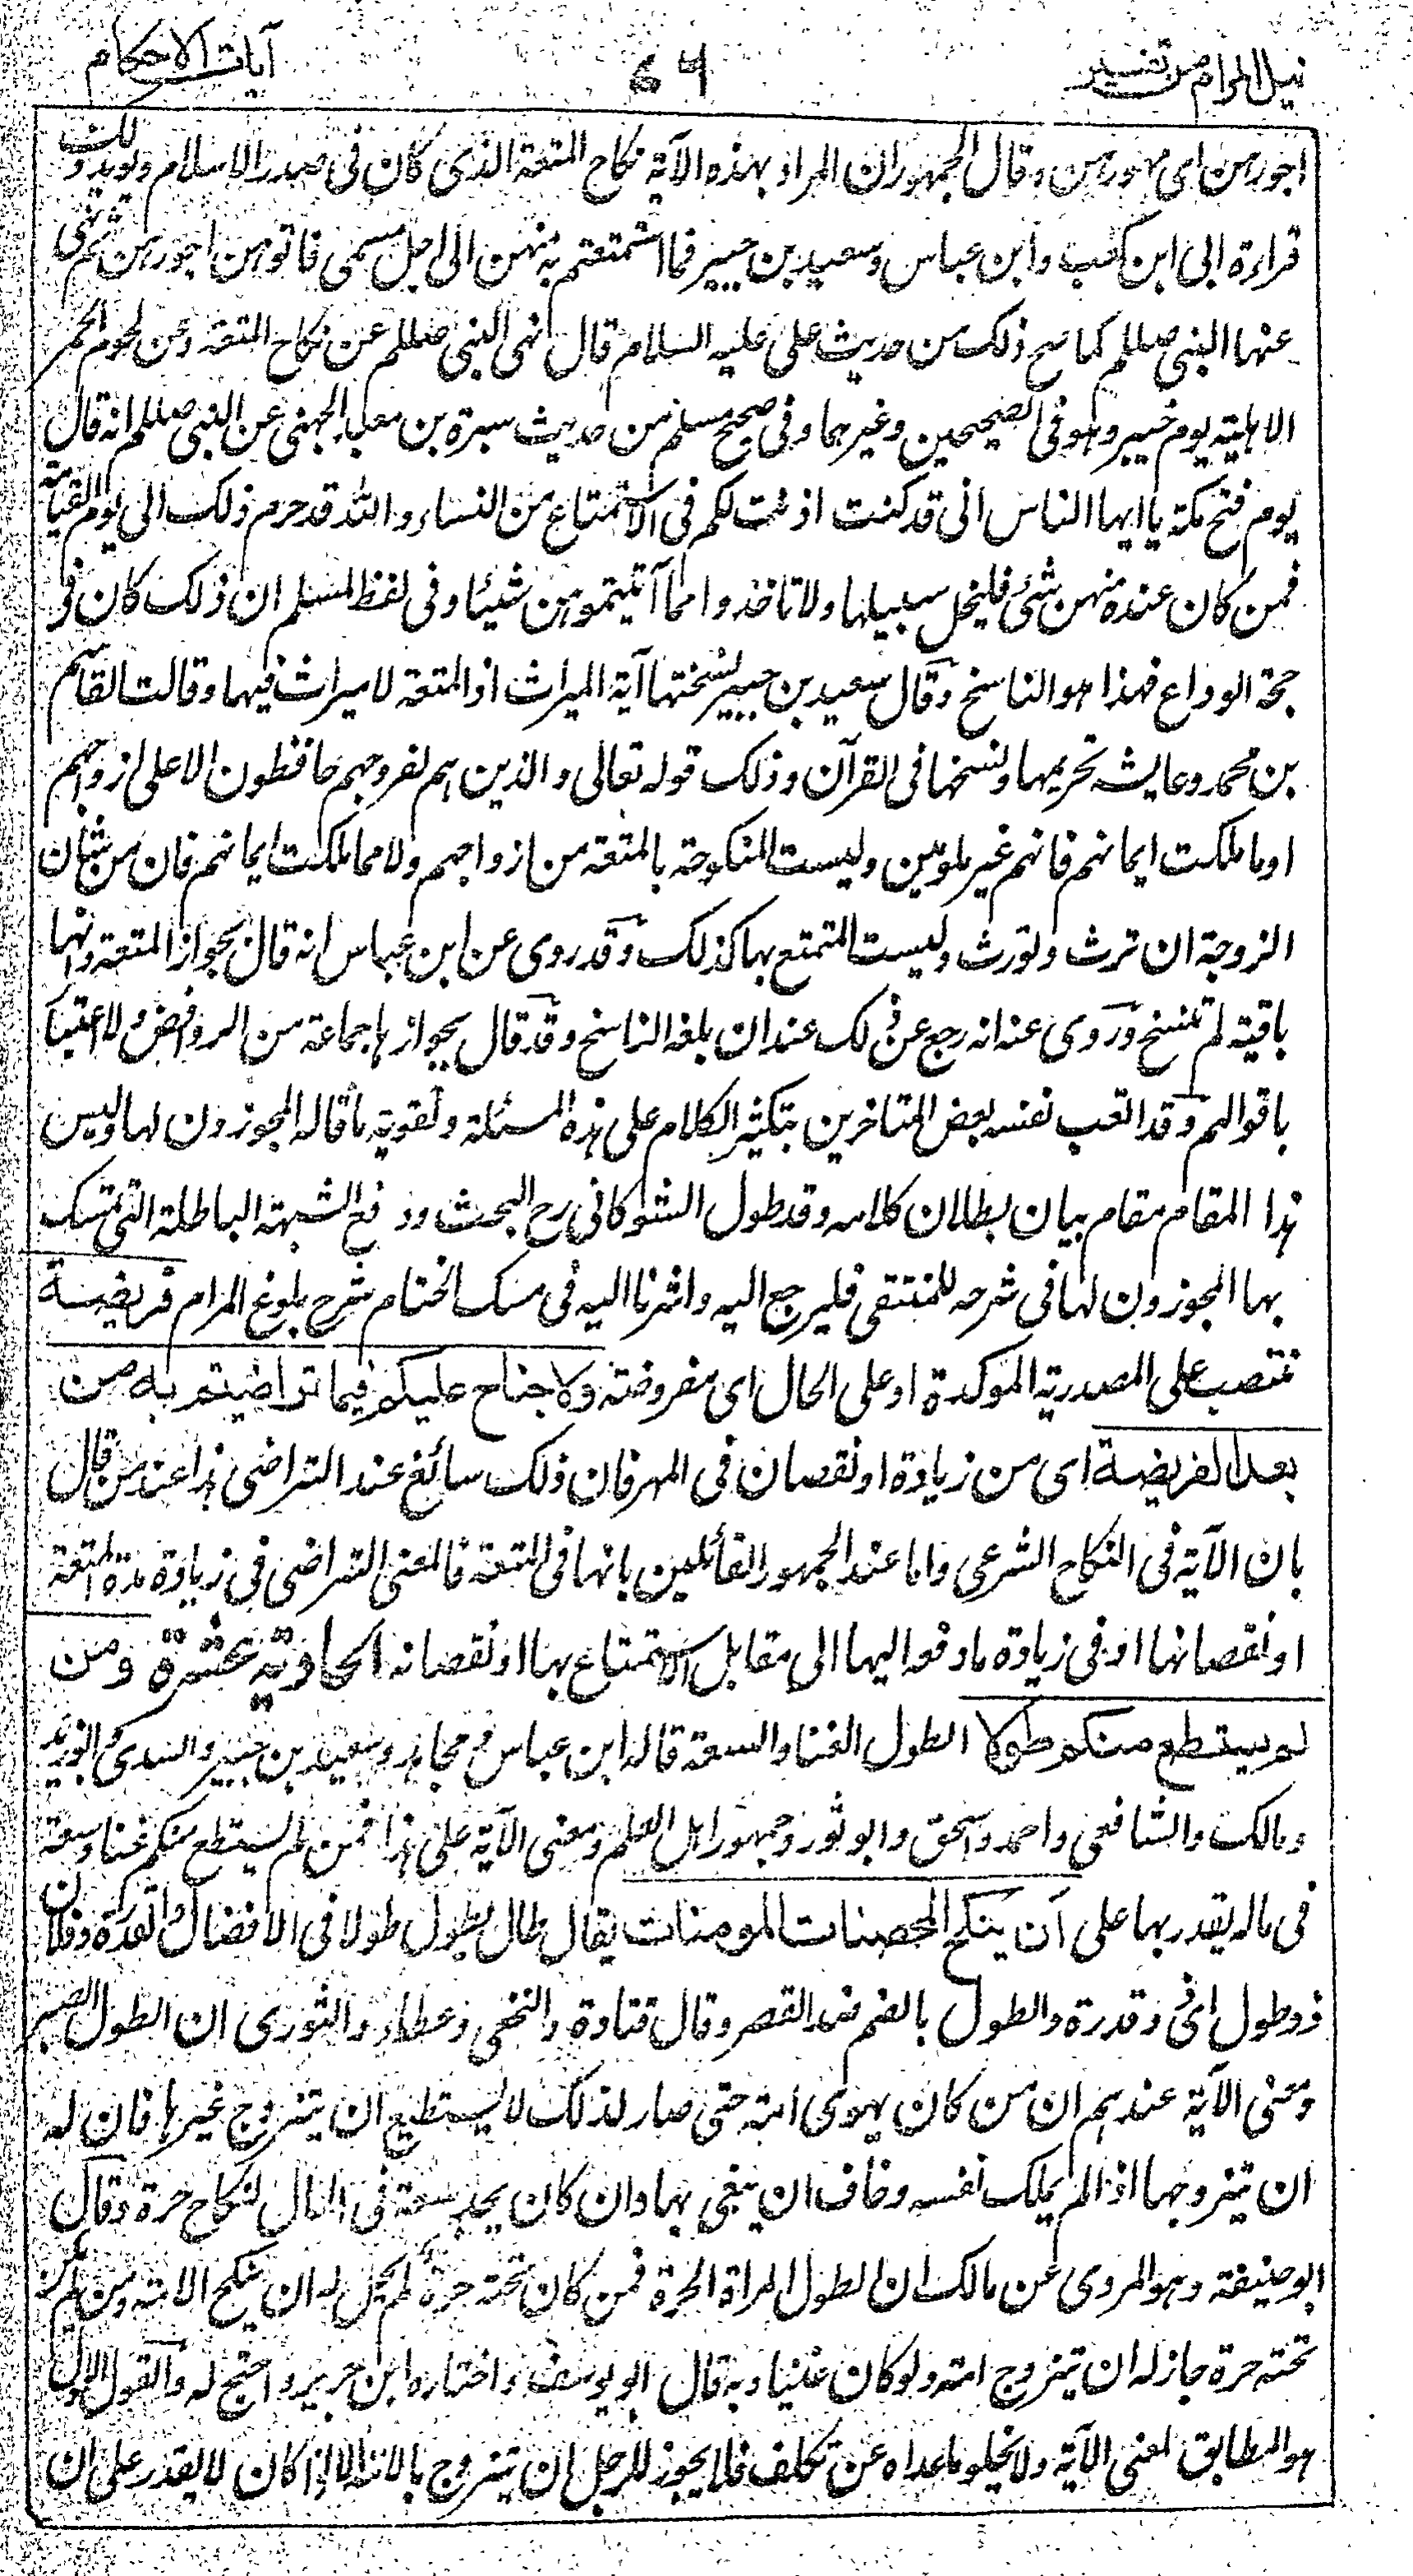 نيل المرام من تفسير ٦٩ آيات الاحكام
اجورهن اى مهورهن وقال الجمهور ان المراد بهذه الآية نكاح المتعة الذى كان فى صدر الاسلام ويويد ذلك
قراءة ابى ابن كعب وابن عباس وسعيد بن جبير فما استمتعتم به منهن الى اجل مسمى فاتوهن اجورهن ثم نهى
عنها النبى صللم كما صح ذلك من حديث على عليه السلام قال نهى النبى صللم عن نكاح المتعة وعن لحوم الحمر
الاهلية يوم خيبر وهو فى الصحيحين وغيرهما وفى صحيح مسلم من حديث سبرة بن معبد الجهنى عن النبى صللم انه قال
يوم فتح مكة يا ايها الناس انى قد كنت اذنت لكم فى الاستمتاع من النساء والله قد حرم ذلك الى يوم القيامة
فمن كان عنده منهن شئ فليخل سبيلها ولا تاخذوا مما آتيتموهن شيئا وفى لفظ لمسلم ان ذلك كان فى
حجة الوداع فهذا هو الناسخ وقال سعيد بن جبير نسختها آية الميراث اذ المتعة لا ميراث فيها وقالت القاسم
بن محمد وعايشة تحريمها ونسخها فى القرآن وذلك قوله تعالى والذين هم لفروجهم حافظون الا على ازواجهم
او ما ملكت ايمانهم فانهم غير ملومين وليست المنكوحة بالمتعة من ازواجهم ولا مما ملكت ايمانهم فان من شان
الزوجة ان ترث وتورث وليست المتمتع بها كذلك وقد روى عن ابن عباس انه قال بجواز المتعة وانها
باقية لم تنسخ وروى عنه انه رجع عن ذلك عند ان بلغه الناسخ وقد قال بجوازها جماعة من الروافض ولا اعتبار
باقوالهم وقد اتعب نفسه بعض المتاخرين بتكثير الكلام على هذه المسئلة وتقوية ما قاله المجوزون لها وليس
هذا المقام مقام بيان بطلان كلامه وقد طول الشوكانى رح البحث ودفع الشبهة الباطلة التى تمسك
بها المجوزون لها فى شرحه للمنتقى فليرجع اليه واشرنا اليه فى مسك الختام شرح بلوغ المرام فريضة
تنتصب على المصدرية الموكدة او على الحال اى مفروضة ولا جناح عليكم فيما تراضيتم به من
بعد الفريضة اى من زيادة او نقصان فى المهر فان ذلك سائغ عند التراضى هذا عند من قال
بان الآية فى النكاح الشرعى واما عند الجمهور القائلين بانها فى المتعة فالمعنى التراضى فى زيادة مدة المتعة
او نقصانها او فى زيادة ما دفعه اليها الى مقابل الاستمتاع بها او نقصانه الحادية عشرة ومن
لم يستطع منكم طولا الطول الغنا والسعة قاله ابن عباس ومجاهد وسعيد بن جبير والسدى وابو زيد
ومالك والشافعى واحمد واسحق وابو ثور وجمهور اهل العلم ومعنى الآية على هذا فمن لم يستطع منكم غنا وسعة
فى ماله يقدر بها على ان ينكح المحصنات المومنات يقال طال يطول طولا فى الافضال والقدرة وفلان
ذو طول اى ذو قدرة والطول بالضم ضد القصر وقال قتادة والنخعى وعطاء والثورى ان الطول الصبر
ومعنى الآية عندهم ان من كان يهوى امة حتى صار لذلك لا يستطيع ان يتزوج غيرها فان له
ان يتزوجها اذا لم يملك نفسه وخاف ان يبغى بها وان كان يجد سعة فى المال لنكاح حرة وقال
ابو حنيفة وهو المروى عن مالك ان الطول المراة الحرة فمن كان تحته حرة لم يحل له ان ينكح الامة ومن لم يكن
تحته حرة جاز له ان يتزوج امة ولو كان غنيا وبه قال ابو يوسف واختاره ابن جرير واحتج له والقول الاول
هو المطابق لمعنى الآية ولا يخلو ما عداه عن تكلف فلا يجوز للرجل ان يتزوج بالامة الا اذا كان لا يقدر على ان